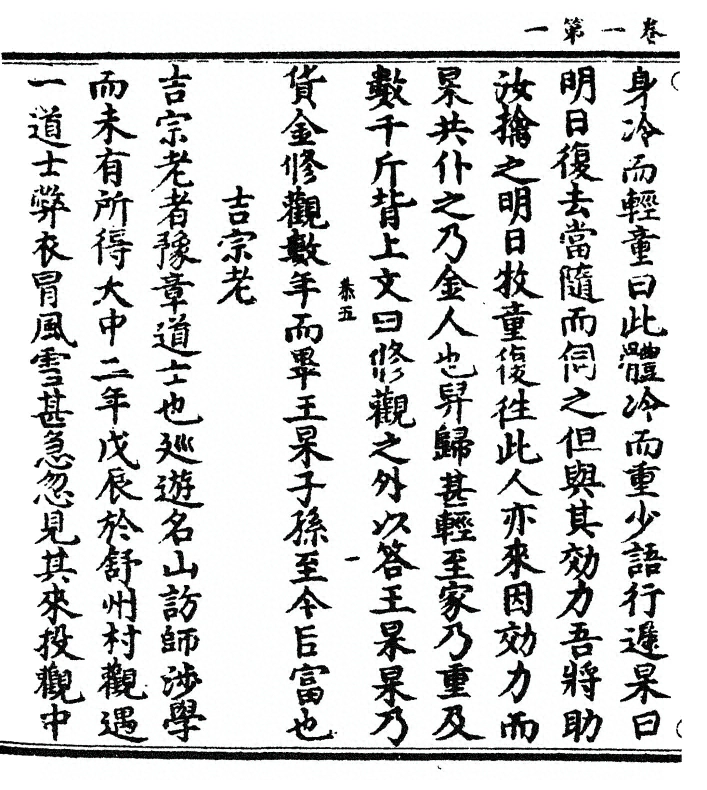 卷一第一
身冷而輕童曰此體冷而重少語行遲杲曰
明日復去當隨而伺之但與其効力吾將助
汝擒之明日牧童復往此人亦來因効力而
杲共仆之乃金人也舁歸甚輕至家乃重及
數千斤背上文曰修觀之外以答王杲杲乃
恭五 一
貨金修觀數年而畢王杲子孫至今巨富也
吉宗老
吉宗老者豫章道士也巡遊名山訪師涉學
而未有所得大中二年戊辰於舒州村觀遇
一道士弊衣冒風雪甚急忽見其來投觀中